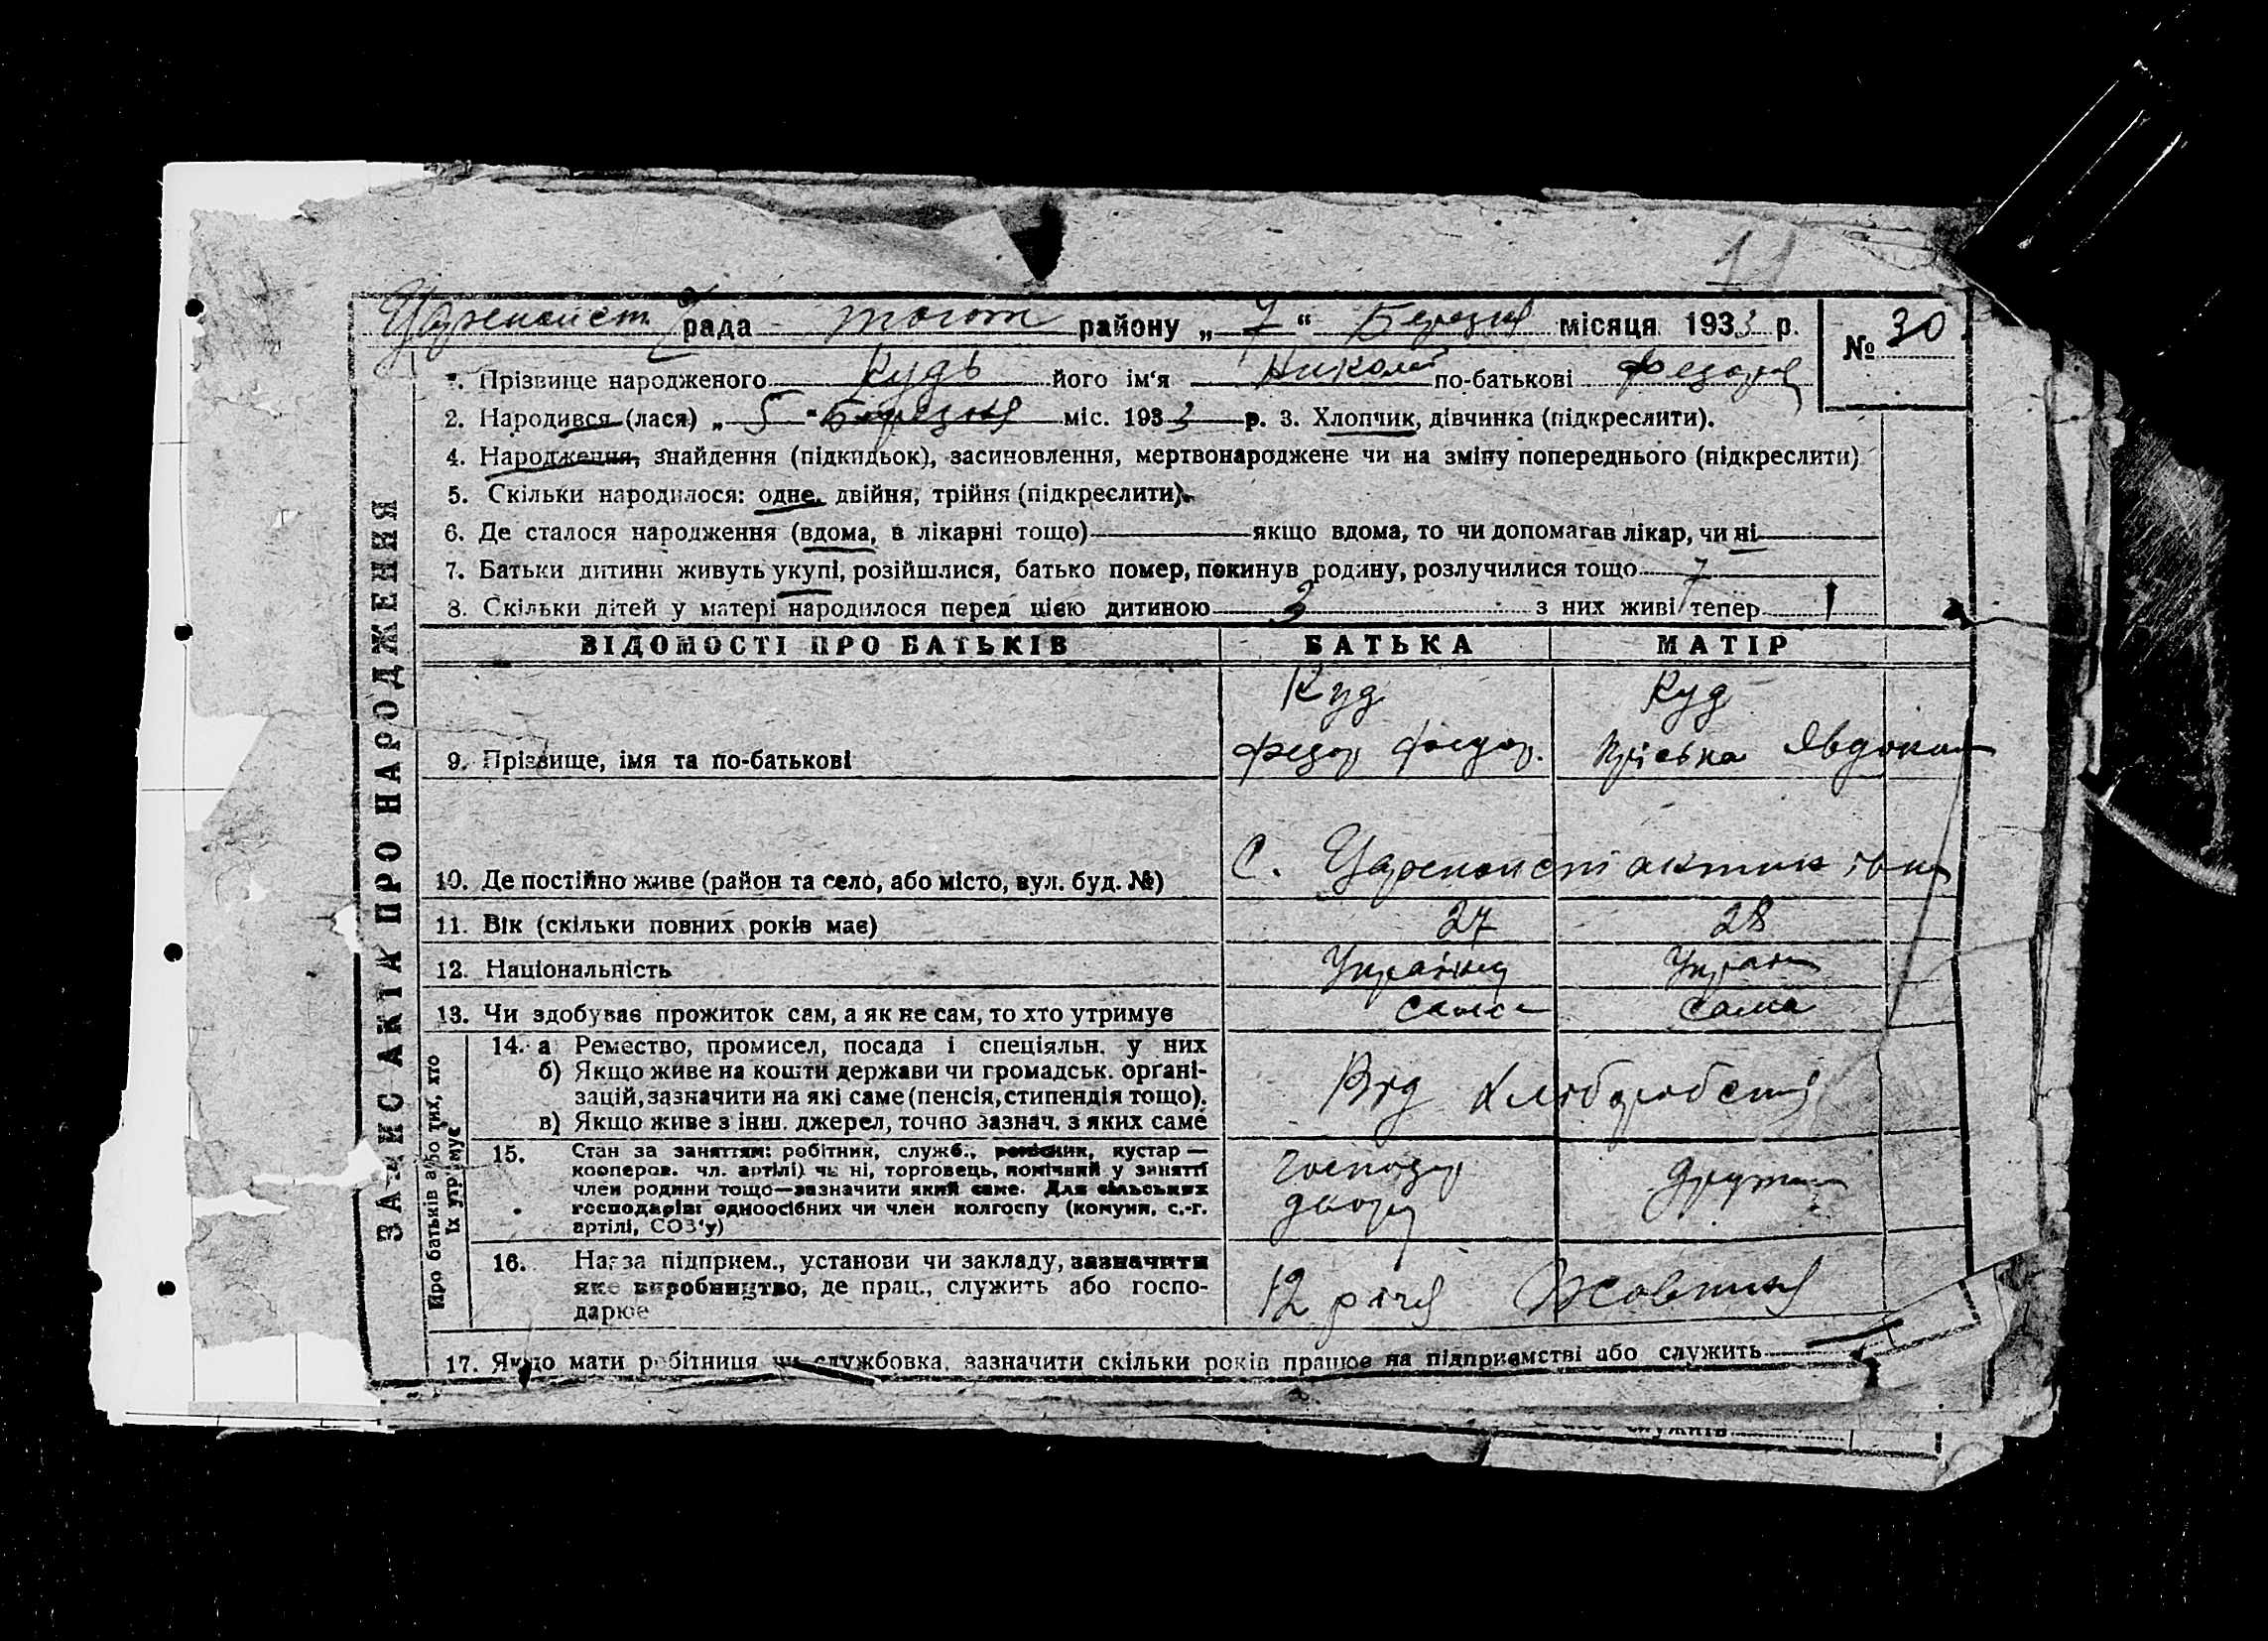 рада району „ 7 “ Березня місяця 1933 р. № 30
1. Прізвище народженого Кудь його ім‘я Николай по-батькові
2. Народився (лася) „ 5 “ Березня міс. 1933 р. 3. Хлопчик, дівчинка (підкреслити).
4. Народження, знайдення (підкидьок), засиновлення, мертвонароджене чи на зміну попереднього (підкреслити)
5. Скільки народилося: одне, двійня, трійня (підкреслити).
6. Де сталося народження (вдома, в лікарні тощо) якщо вдома, то чи допомагав лікар, чи ні
7. Батьки дитини живуть укупі, розійшлися, батько помер, покинув родину, розлучилися тощо
8. Скільки дітей у матері народилося перед цією дитиною з них живі тепер 1
ЗАПИС АКТА ПРО НАРОДЖЕННЯ
ВІДОМОСТІ ПРО БАТЬКІВ БАТЬКА МАТІР
Куд Куд
9. Прізвище, імя та по-батькові Федор Федор.
10. Де постійно живе (район та село, або місто, вул. буд. №) С.
11. Вік (скільки повних років має) 27 28
12. Національність
13. Чи здобуває прожиток сам, а як не сам, то хто утримує сама
Про батьків або тих, хто
їх утримує
14. а Ремество, промисел, посада і спеціяльн. у них
б) Якщо живе на кошти держави чи громадськ. органі-
зацій, зазначити на які саме (пенсія, стипендія тощо).
в) Якщо живе з інш. джерел, точно зазнач. з яких саме
15. Стан за заняттям: робітник, служб., ремісник, кустар —
кооперов. чл. артілі) чи ні, торговець, помічний у занятті
член родини тощо—зазначити який саме. Для сільських
господарів: одноосібних чи член колгоспу (комуни, с.-г.
артілі, СОЗ‘у)
16. Назва підприєм., установи чи закладу, зазначити
яке виробництво, де прац., служить або госпо-
дарює 12 річя Жовтня
17. Якщо мати робітниця чи службовка, зазначити скільки років працює на підприємстві або служить
служить